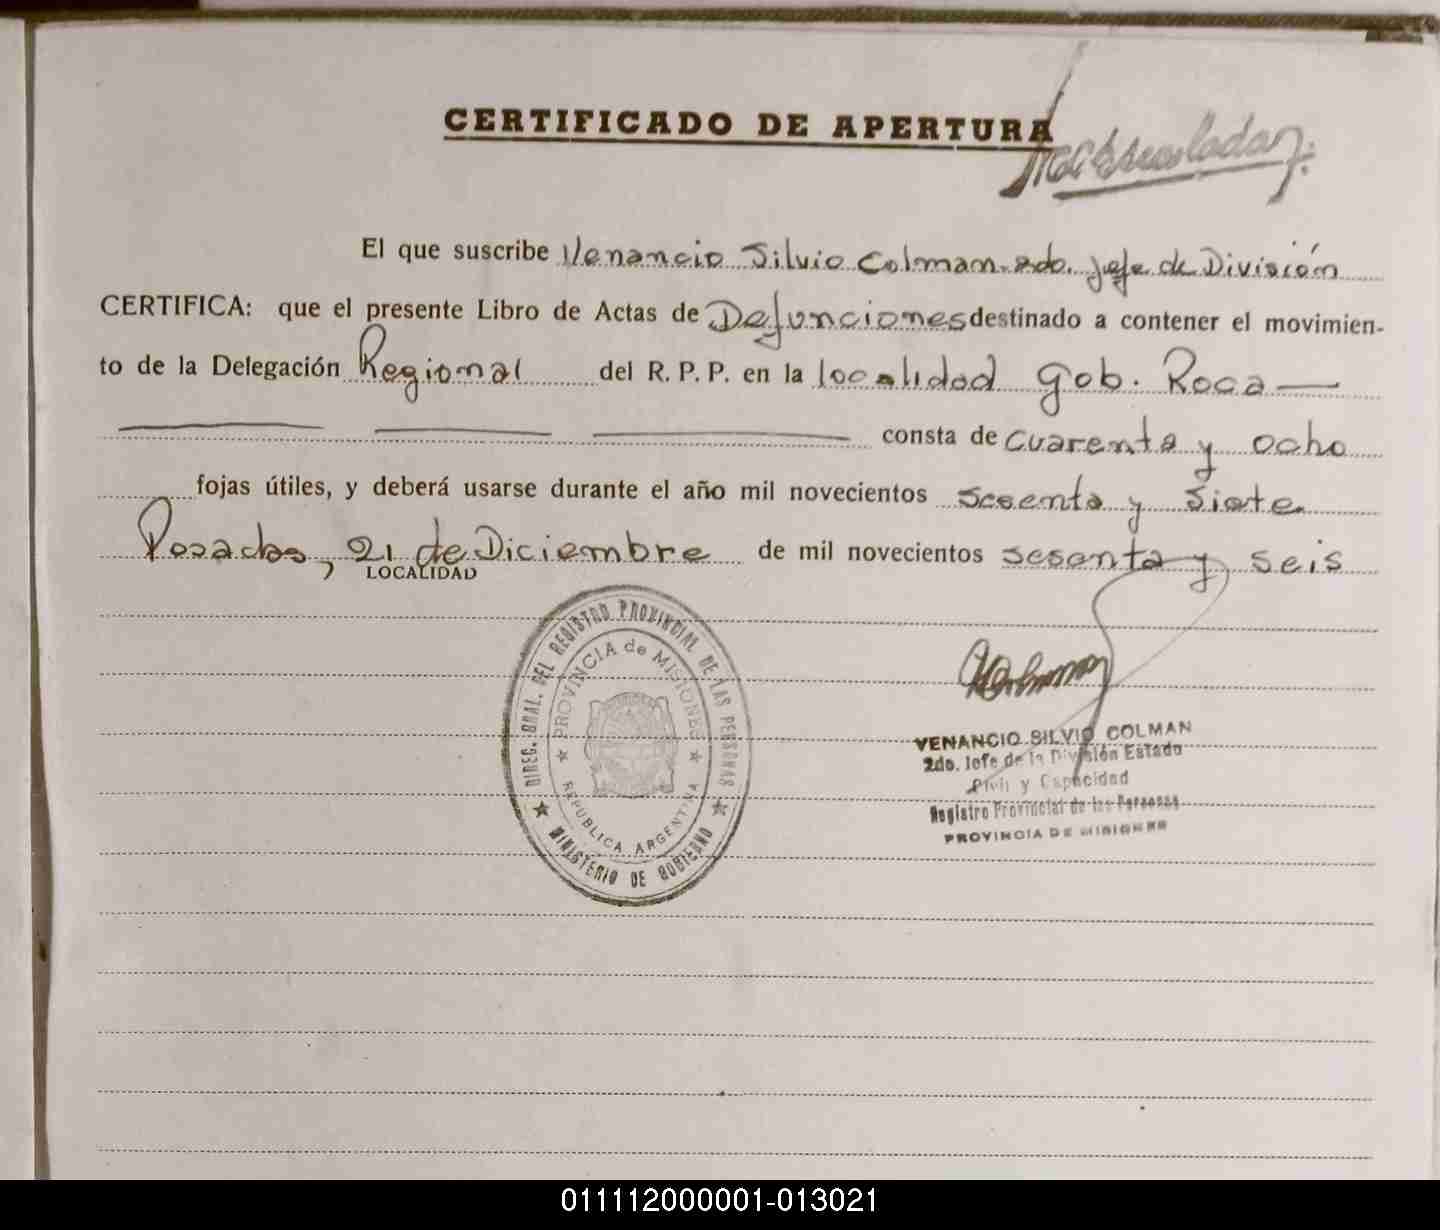 CERTIFICADO DE APERTURA
El que suscribe Venancio Silvio Colman. 2do. Jefe de División
CERTIFICA: que el presente Libro de Actas de Defunciones destinado a contener el movimien-
to de la Delegación Regional del R. P. P. en la localidad Gob. Roca
consta de cuarenta y ocho
fojas útiles, y deberá usarse durante el año mil novecientos sesenta y siete
Posadas, 21 de Diciembre de mil novecientos sesenta y seis
LOCALIDAD
DIREC. GRAL. DEL REGISTRO PROVINCIAL DE LAS PERSONAS
PROVINCIA de MISIONES
REPUBLICA ARGENTINA
MINISTERIO DE GOBIERNO
VENANCIO SILVIO COLMAN
2do. Jefe de la División Estado
Civil y Capacidad
Registro Provincial de las Personas
PROVINCIA DE MISIONES
011112000001-013021